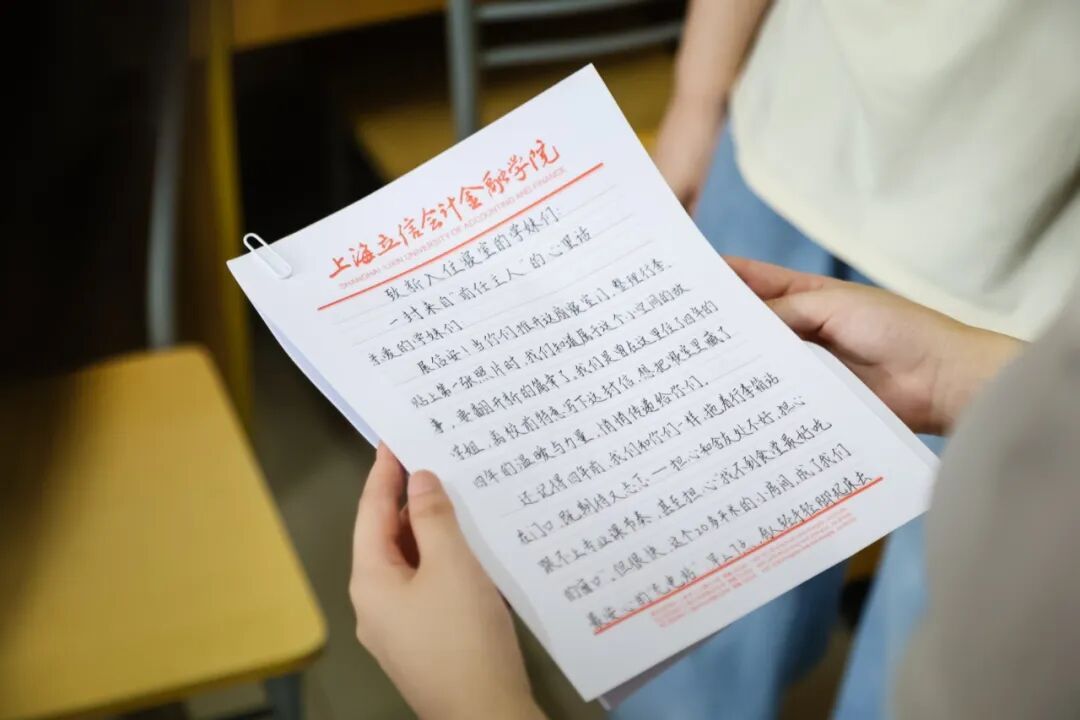 上海立信会计金融学院
SHANGHAI LIXIN UNIVERSITY OF ACCOUNTING AND FINANCE
致新入住寝室的学妹们:
一封来自“前任主人”的心里话
亲爱的学妹们
展信安!当你们推开这扇寝室门,整理行李、
贴上第一张照片时,我们知道属于这个小空间的故
事,要翻开新的篇章了。我们是曾在这里住了四年的
学姐,离校前特意写下这封信,想把寝室里藏了
四年的温暖与力量,悄悄传递给你们。
还记得四年前,我们和你们一样,拖着行李箱站
在门口,既期待又忐忑——担心和舍友处不好,担心
跟不上专业课节奏,甚至担心“找不到食堂最好吃
的窗口”。但很快,这个20多平米的小房间,成了我们
最安心的“充电站”。早上7点,有人轻手轻脚起床去